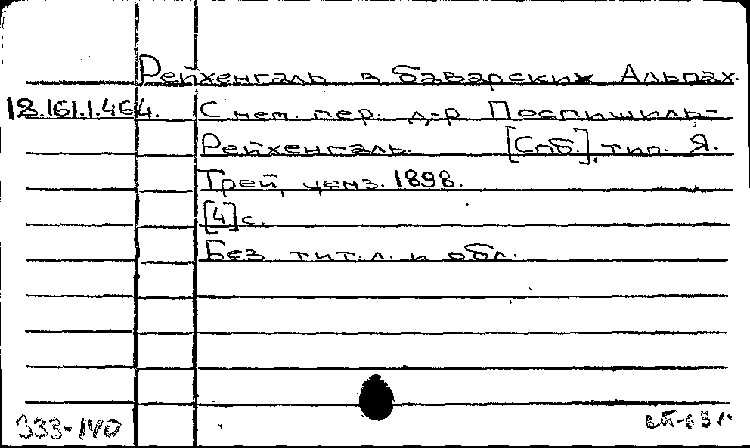 Рейхенгаль в баварских Альпах.
18.161.1.464. С нем. пер. д-р Поспишиль-
Рейхенгаль. [Спб.], тип. Я.
Трей, ценз. 1898.
[4] с.
Без тит. л. и обл.
333-140